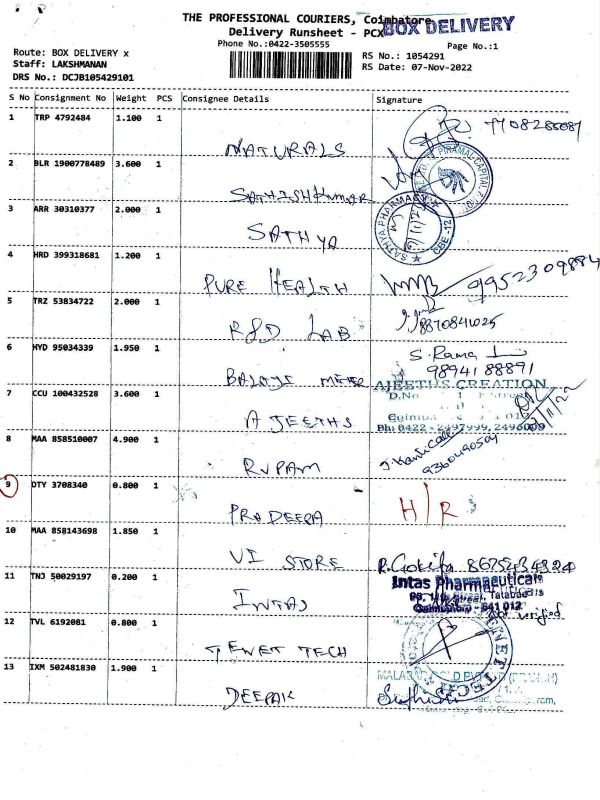 THE PROFESSIONAL COURIERS, Coimbatore
Delivery Runsheet - PCX
BOX DELIVERY
Phone No.:0422-3505555
Page No.:1
Route: BOX DELIVERY x
Staff: LAKSHMANAN
DRS No.: DCJB105429101
RS No.: 1054291
RS Date: 07-Nov-2022
S No Consignment No Weight PCS Consignee Details Signature
1 TRP 4792484 1.100 1
NATURALS
2 BLR 1900778489 3.600 1
SATHISHKUMAR
PIRAMAL CAPITAL
3 ARR 30310377 2.000 1
SATHYA
SATHYA PHARMACY CBE-12
4 HRD 399318681 1.200 1
PURE HEALTH 9952309884
5 TRZ 53834722 2.000 1
R&D LAB 8870841025
6 HYD 95034339 1.950 1
S. Rama
BALAJI METER 98941 88891
7 CCU 100432528 3.600 1
AJEETHS
AJEETHS CREATION
D.No
Ph: 0422 - 2497999, 2496009
8 MAA 858510007 4.900 1
RUPAM 9360490504
9 OTY 3708340 0.800 1
PRADEEPA H/R
10 MAA 858143698 1.850 1
VI STORE
11 TNJ 50029197 0.200 1
INTAS
Intas Pharmaceuticals
Coimbatore - 641 012
Not verified
12 TVL 6192081 0.800 1
TENET TECH
TENET TECH
13 IXM 502481830 1.900 1
DEEPAK